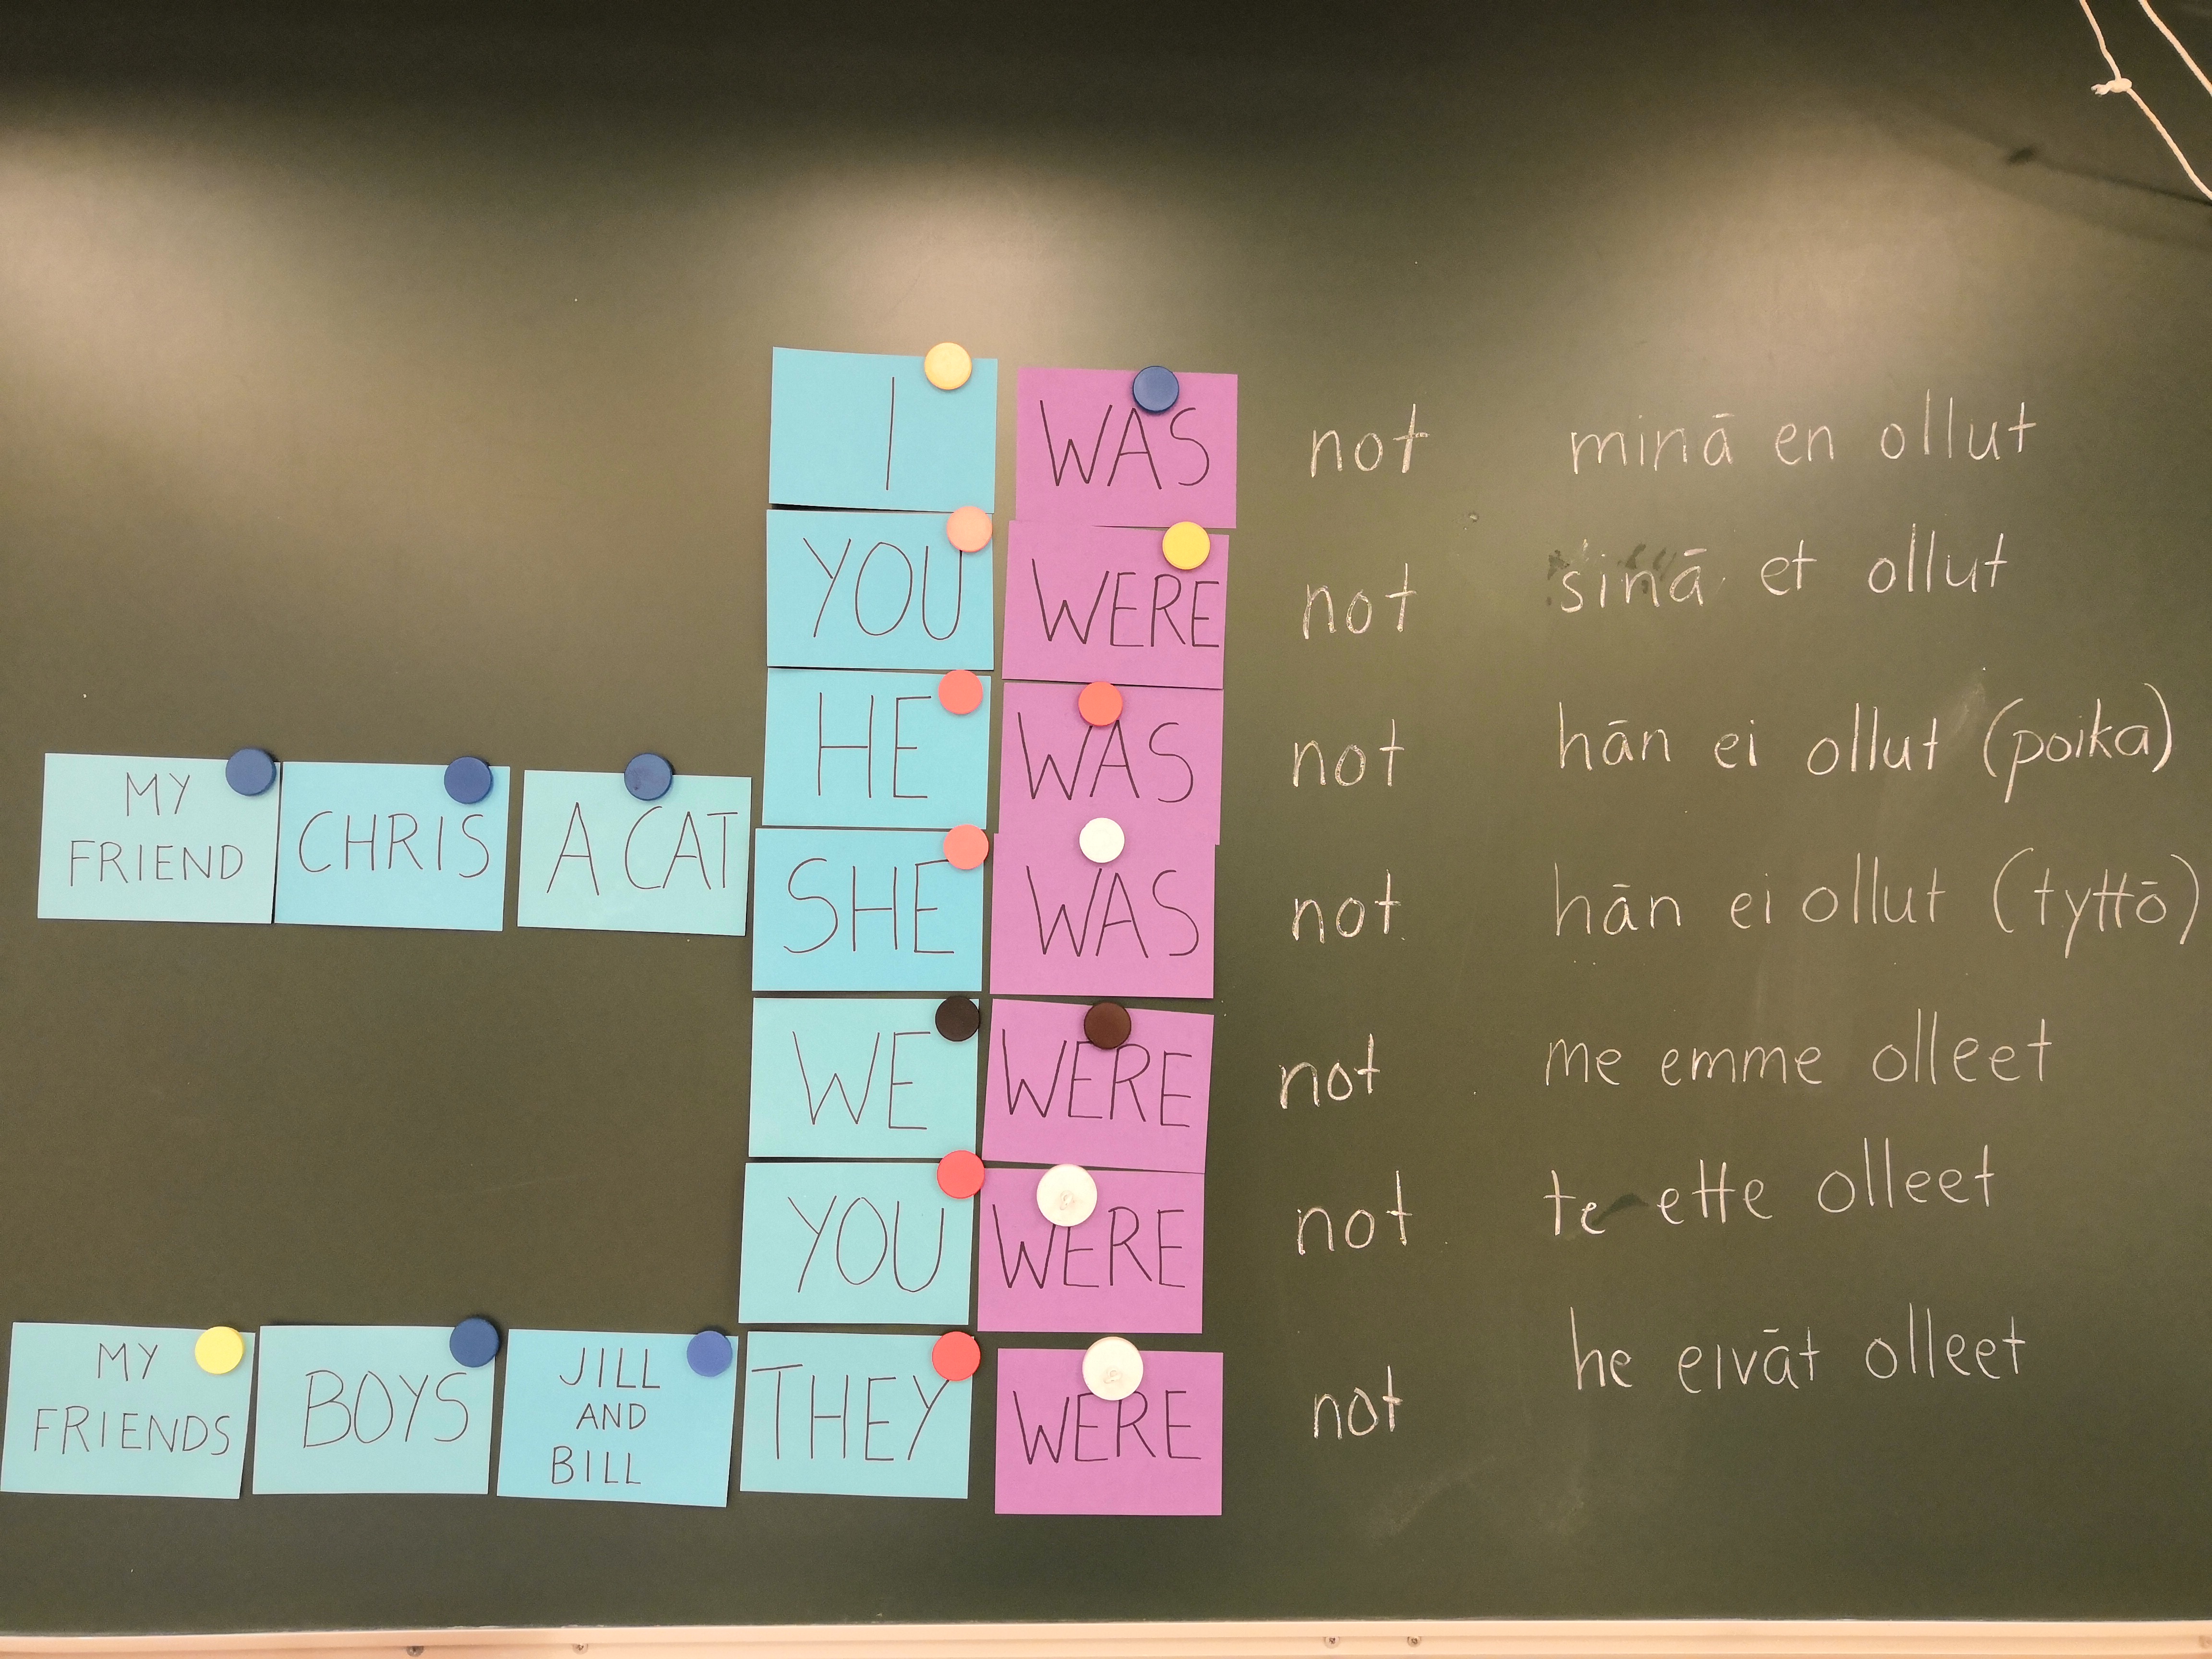 I WAS not minä en ollut
YOU WERE not sinä et ollut
HE WAS not hän ei ollut (poika)
MY FRIEND CHRIS A CAT SHE WAS not hän ei ollut (tyttö)
WE WERE not me emme olleet
YOU WERE not te ette olleet
MY FRIENDS BOYS JILL AND BILL THEY WERE not he eivät olleet